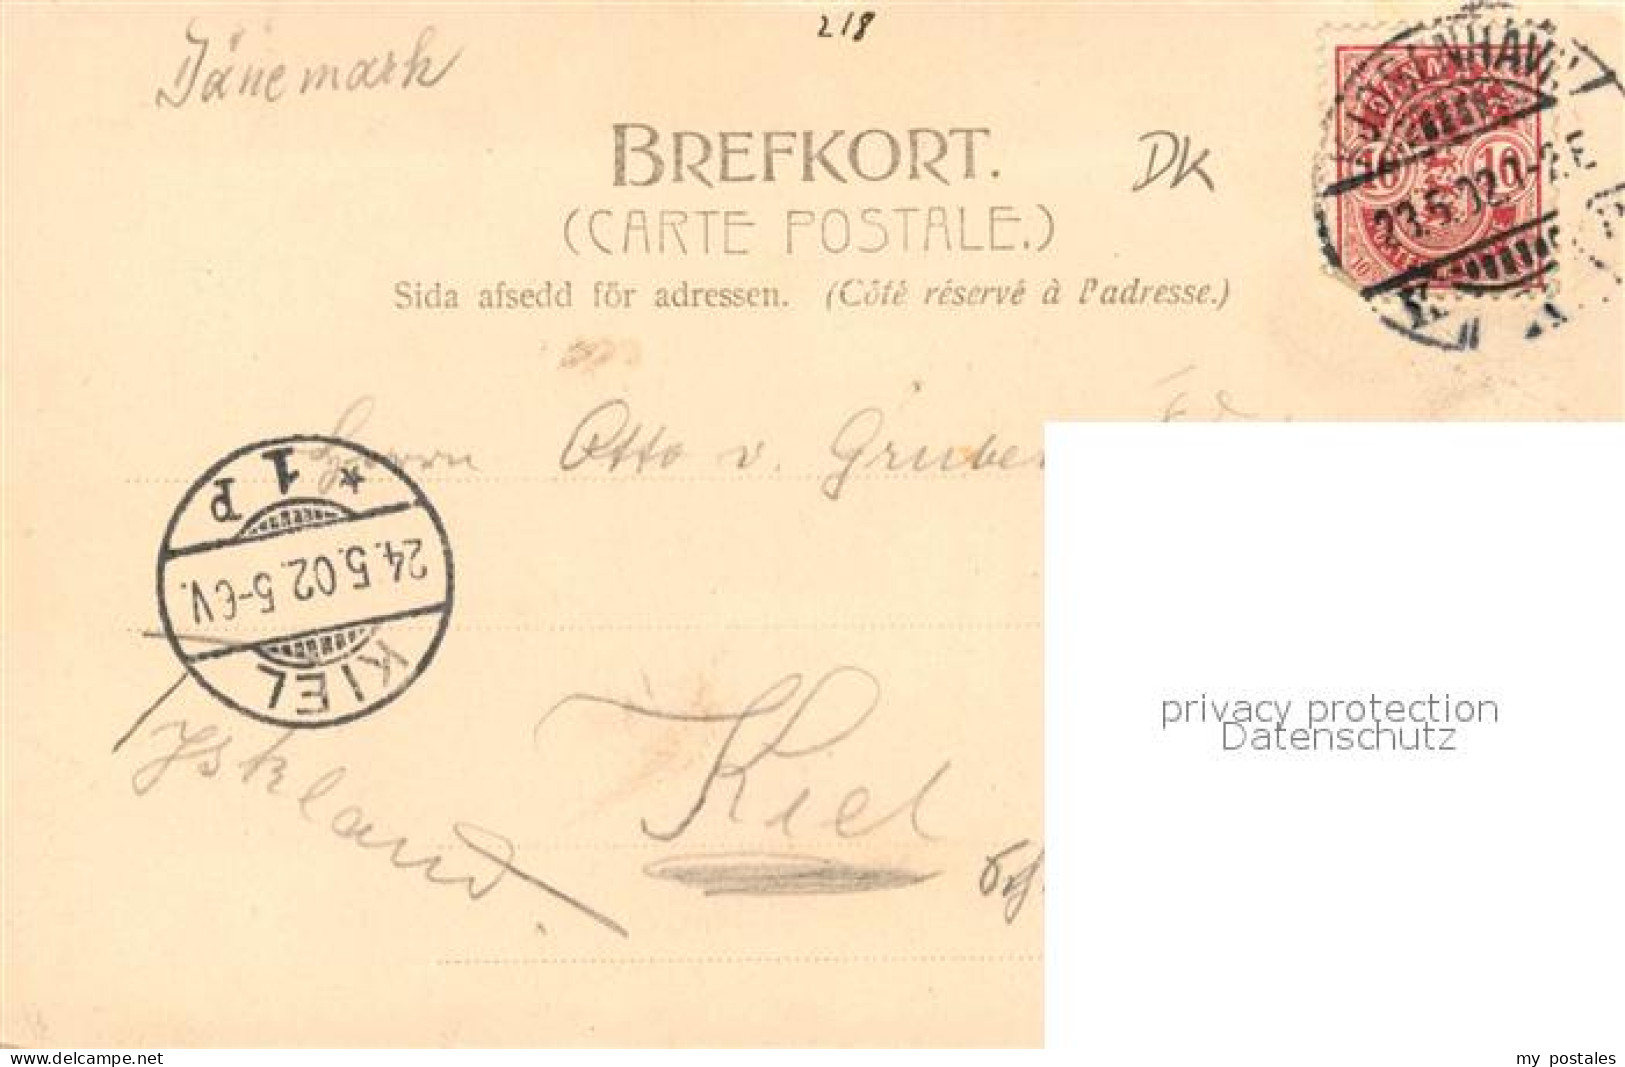 218
Dänemark
KJØBENHAVN
10 10
23.5.02. 1-2.E
K.
BREFKORT.
DK
(CARTE POSTALE.)
Sida afsedd för adressen. (Côté réservé à l'adresse.)
Herrn Otto v. Gruber
KIEL
24.5.02. 5-6V.
* 1 P
Yskland
Kiel
privacy protection
Datenschutz
www.delcampe.net
my postales